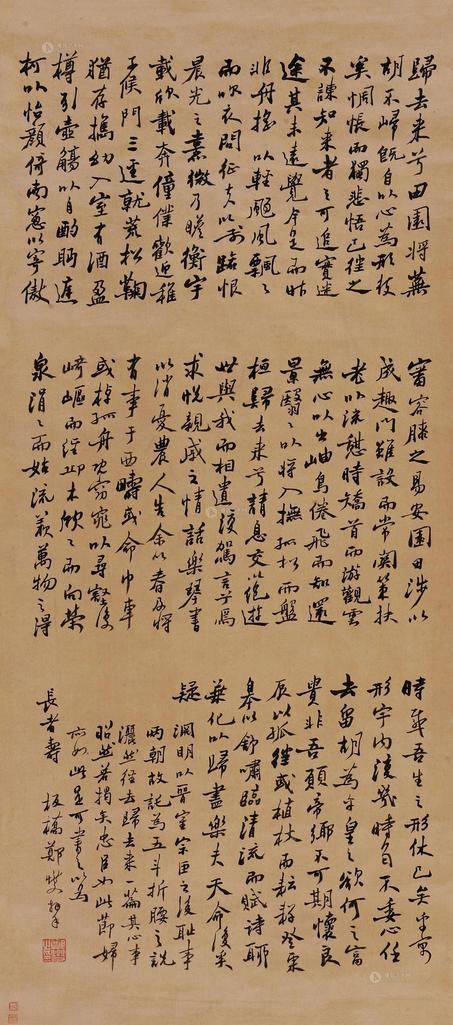 歸去来兮田園將蕪
胡不歸既自以心為形役
奚惆悵而獨悲悟已往之
不諫知来者之可追實迷
途其未遠覺今是而昨
非舟搖以輕颺風飄
而吹衣問征夫以前路恨
晨光之熹微乃瞻衡宇
載欣載奔僮僕歡迎稚
子候門三逕就荒松鞠
猶存攜幼入室有酒盈
樽引壺觴以自酌眄庭
柯以怡顏倚南窻以寄傲
審容膝之易安園日涉以
成趣門雖設而常關策扶
老以流憩時矯首而游觀雲
無心以出岫鳥倦飛而知還
景翳以將入撫孤松而盤
桓歸去来兮請息交以絕遊
世與我而相遺復駕言兮焉
求悅親戚之情話樂琴書
以消憂農人告余以春及將
有事于西疇或命巾車
或棹孤舟既窈窕以尋壑復
崎嶇而經邱木欣而向榮
泉涓而始流羨萬物之得
時感吾生之行休已矣乎寓
形宇內復幾時曷不委心任
去留胡為乎皇皇欲何之富
貴非吾願帝鄉不可期懷良
辰以孤往或植杖而耘耔登東
皋以舒嘯臨清流而賦詩聊
乘化以歸盡樂夫天命復奚
疑 淵明以晉室宗臣之後恥事
兩朝故託為五斗折腰之說
灑然徑去歸去来一篇其心事
昭然若揭矣忠臣如此節婦
亦如此是可書以為
長者壽 板橋鄭燮